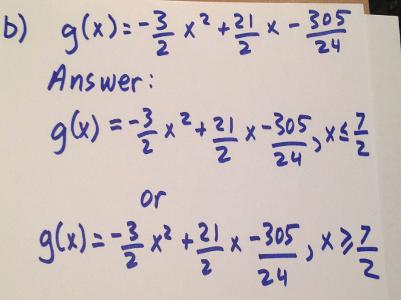 b) g(x) = -3/2 x² + 21/2 x - 305/24
Answer:
g(x) = -3/2 x² + 21/2 x - 305/24, x ≤ 7/2
or
g(x) = -3/2 x² + 21/2 x - 305/24, x ≥ 7/2